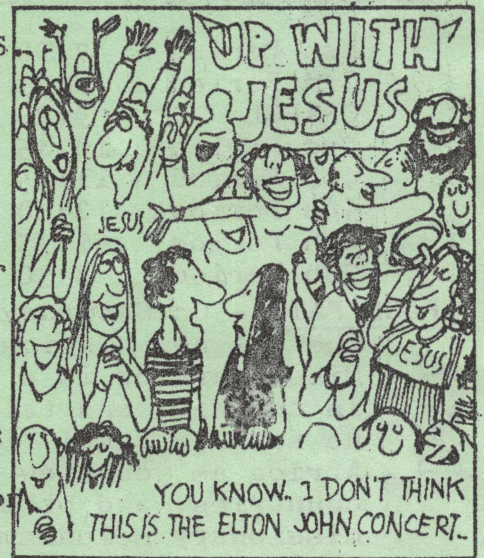 UP WITH
JESUS
JESUS
JESUS
YOU KNOW.. I DON'T THINK
THIS IS THE ELTON JOHN CONCERT..